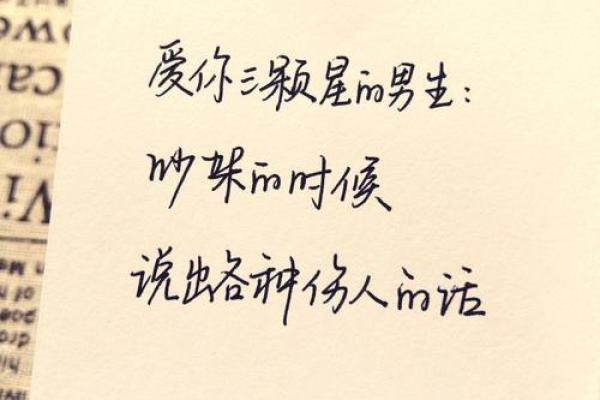 爱你三颗星的男生：
吵架的时候
说出各种伤人的话